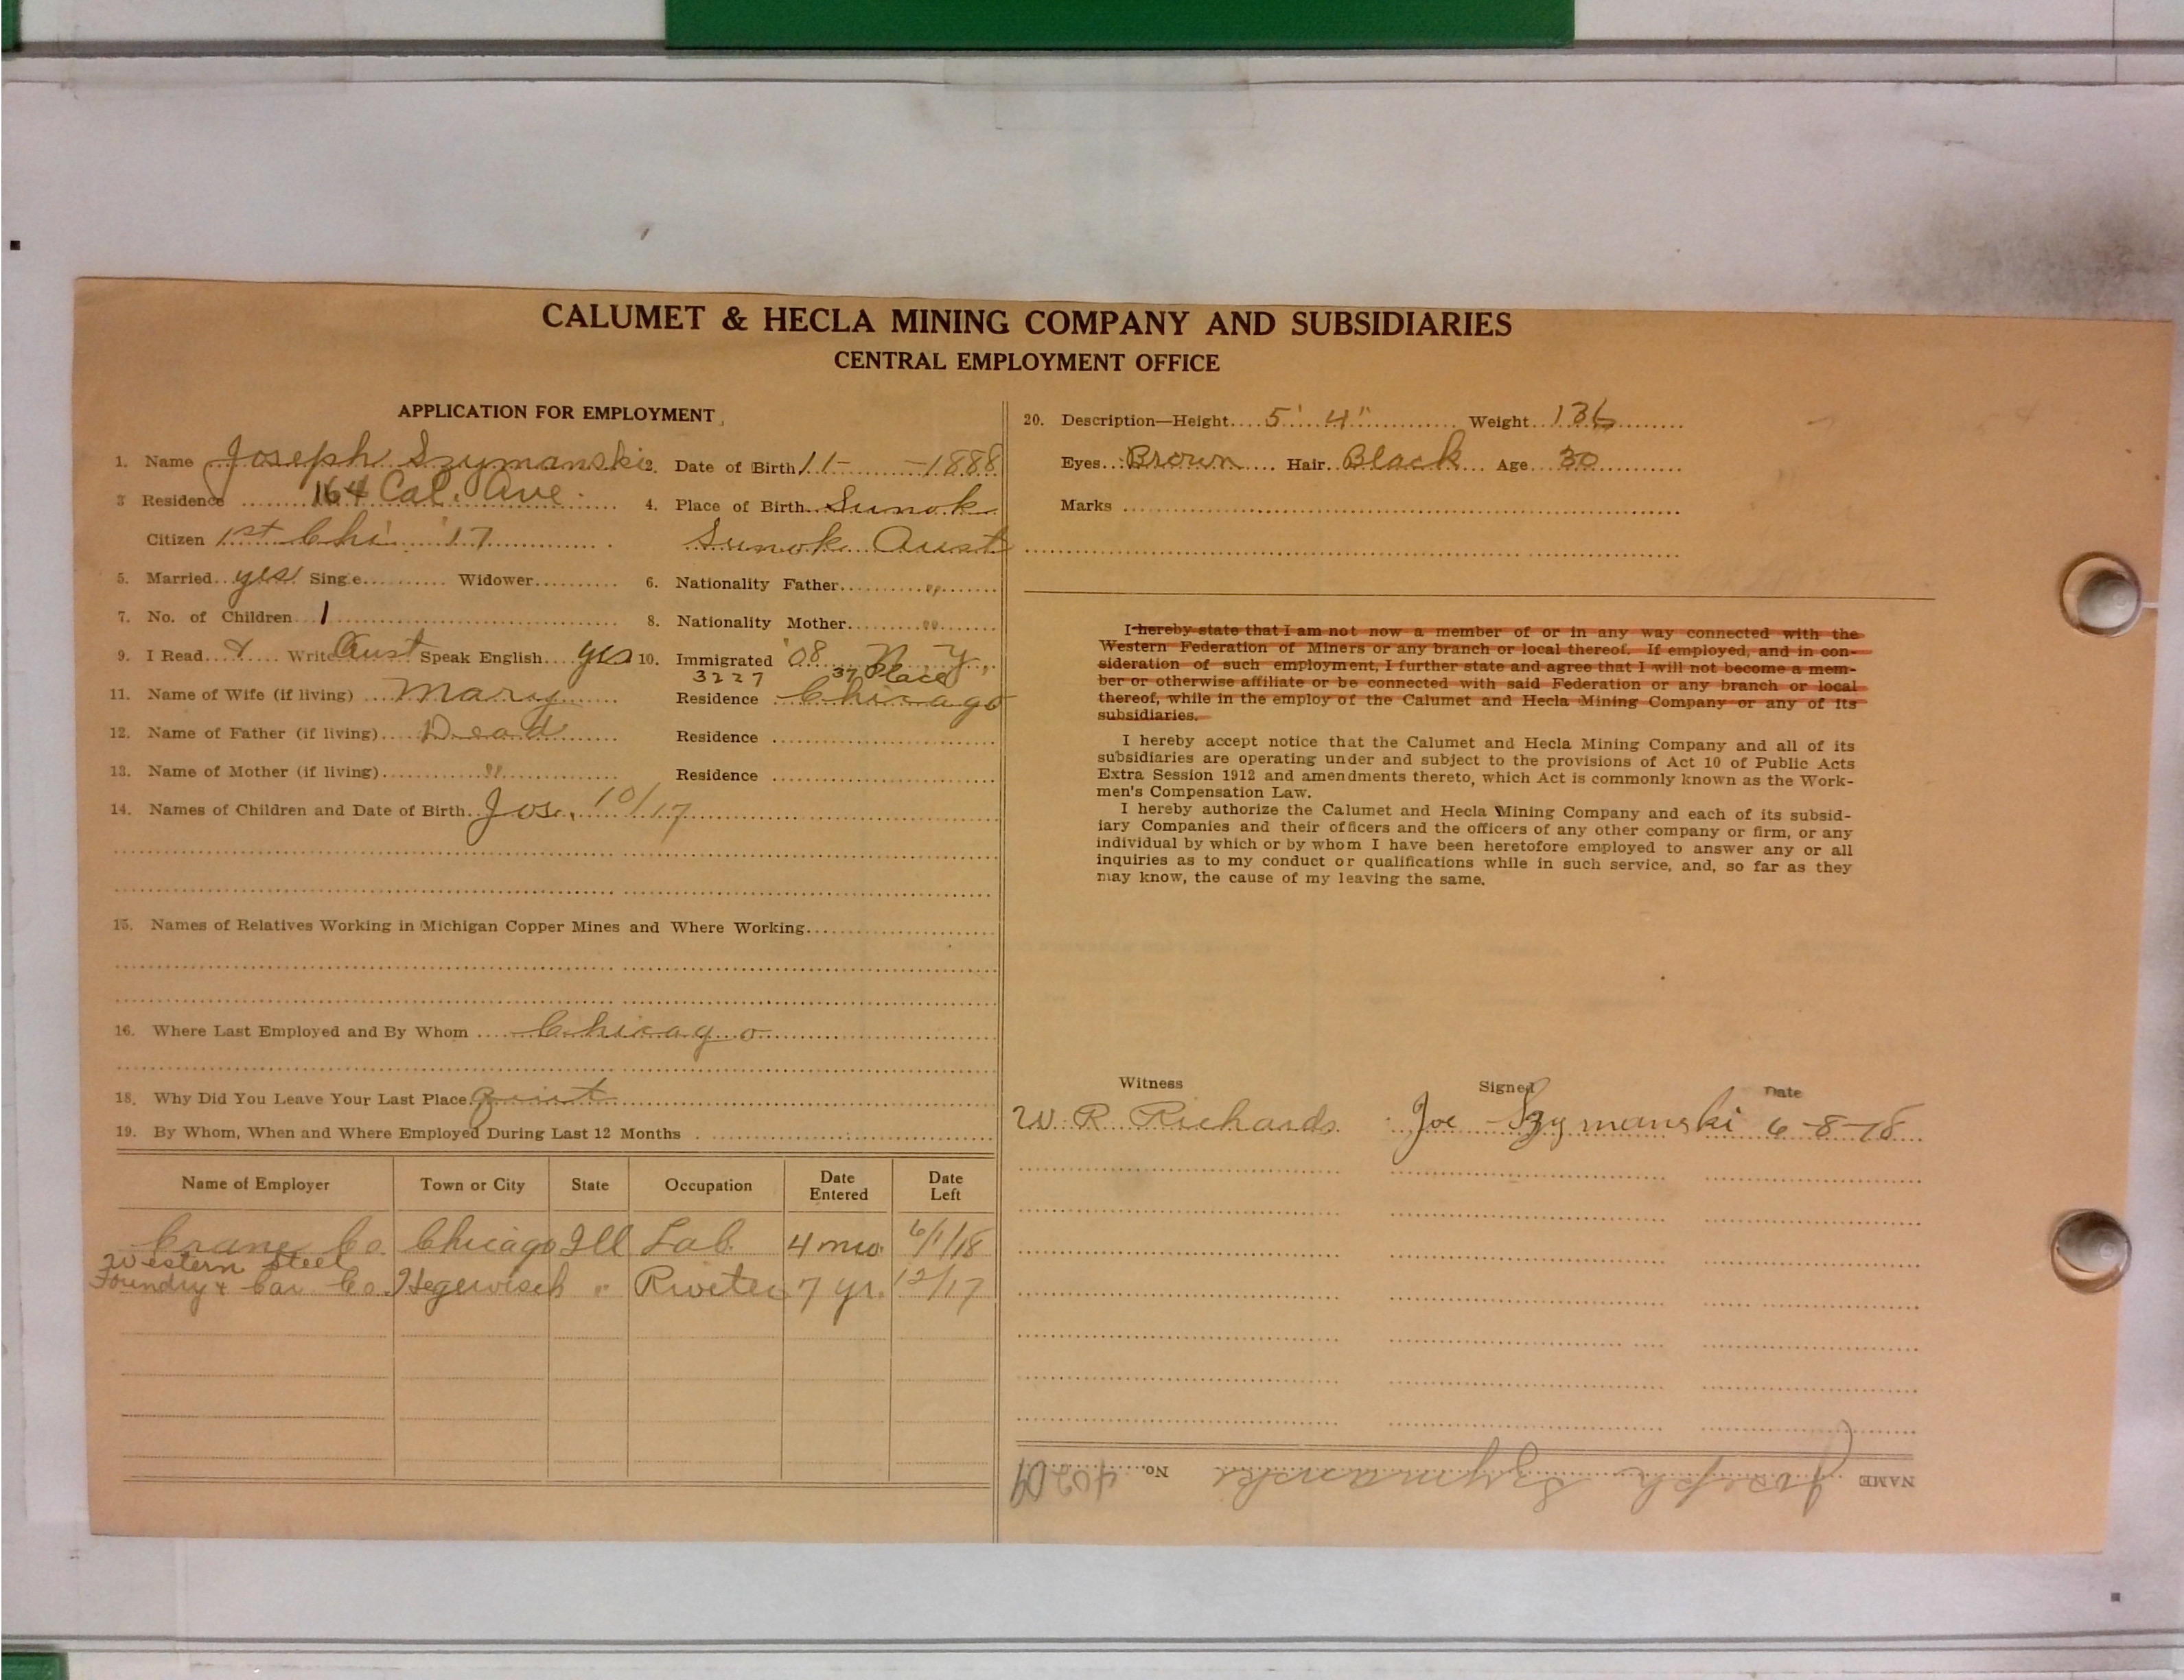 CALUMET & HECLA MINING COMPANY AND SUBSIDIARIES
CENTRAL EMPLOYMENT OFFICE
APPLICATION FOR EMPLOYMENT
1. Name Joseph Szymanski 2. Date of Birth 11- -1888
3 Residence 164 Cal. Ave. 4. Place of Birth Sunok
Citizen 1st Chi '17 Sunok Aust
5. Married yes Single Widower 6. Nationality Father "
7. No. of Children 1 8. Nationality Mother "
9. I Read & Write Aust Speak English yes 10. Immigrated '08 N. Y.
3227 37 Place
11. Name of Wife (if living) Mary Residence Chicago
12. Name of Father (if living) Dead Residence
13. Name of Mother (if living) " Residence
14. Names of Children and Date of Birth Jos. 10/17
15. Names of Relatives Working in Michigan Copper Mines and Where Working
16. Where Last Employed and By Whom Chicago
18. Why Did You Leave Your Last Place Quit
19. By Whom, When and Where Employed During Last 12 Months
Name of Employer Town or City State Occupation Date Entered Date Left
Crane Co. Chicago Ill Lab. 4 mo. 6/1/18
Western Steel
Foundry & Car Co. Hegewisch " Riveter 7 yr. 12/17
20. Description—Height 5' 4" Weight 136
Eyes Brown Hair Black Age 30
Marks
I hereby state that I am not now a member of or in any way connected with the
Western Federation of Miners or any branch or local thereof. If employed, and in con-
sideration of such employment, I further state and agree that I will not become a mem-
ber or otherwise affiliate or be connected with said Federation or any branch or local
thereof, while in the employ of the Calumet and Hecla Mining Company or any of its
subsidiaries.
I hereby accept notice that the Calumet and Hecla Mining Company and all of its
subsidiaries are operating under and subject to the provisions of Act 10 of Public Acts
Extra Session 1912 and amendments thereto, which Act is commonly known as the Work-
men's Compensation Law.
I hereby authorize the Calumet and Hecla Mining Company and each of its subsid-
iary Companies and their officers and the officers of any other company or firm, or any
individual by which or by whom I have been heretofore employed to answer any or all
inquiries as to my conduct or qualifications while in such service, and, so far as they
may know, the cause of my leaving the same.
Witness Signed Date
W. R. Richards Joe Szymanski 6-8-18
NAME Joseph Szymanski No. 40209